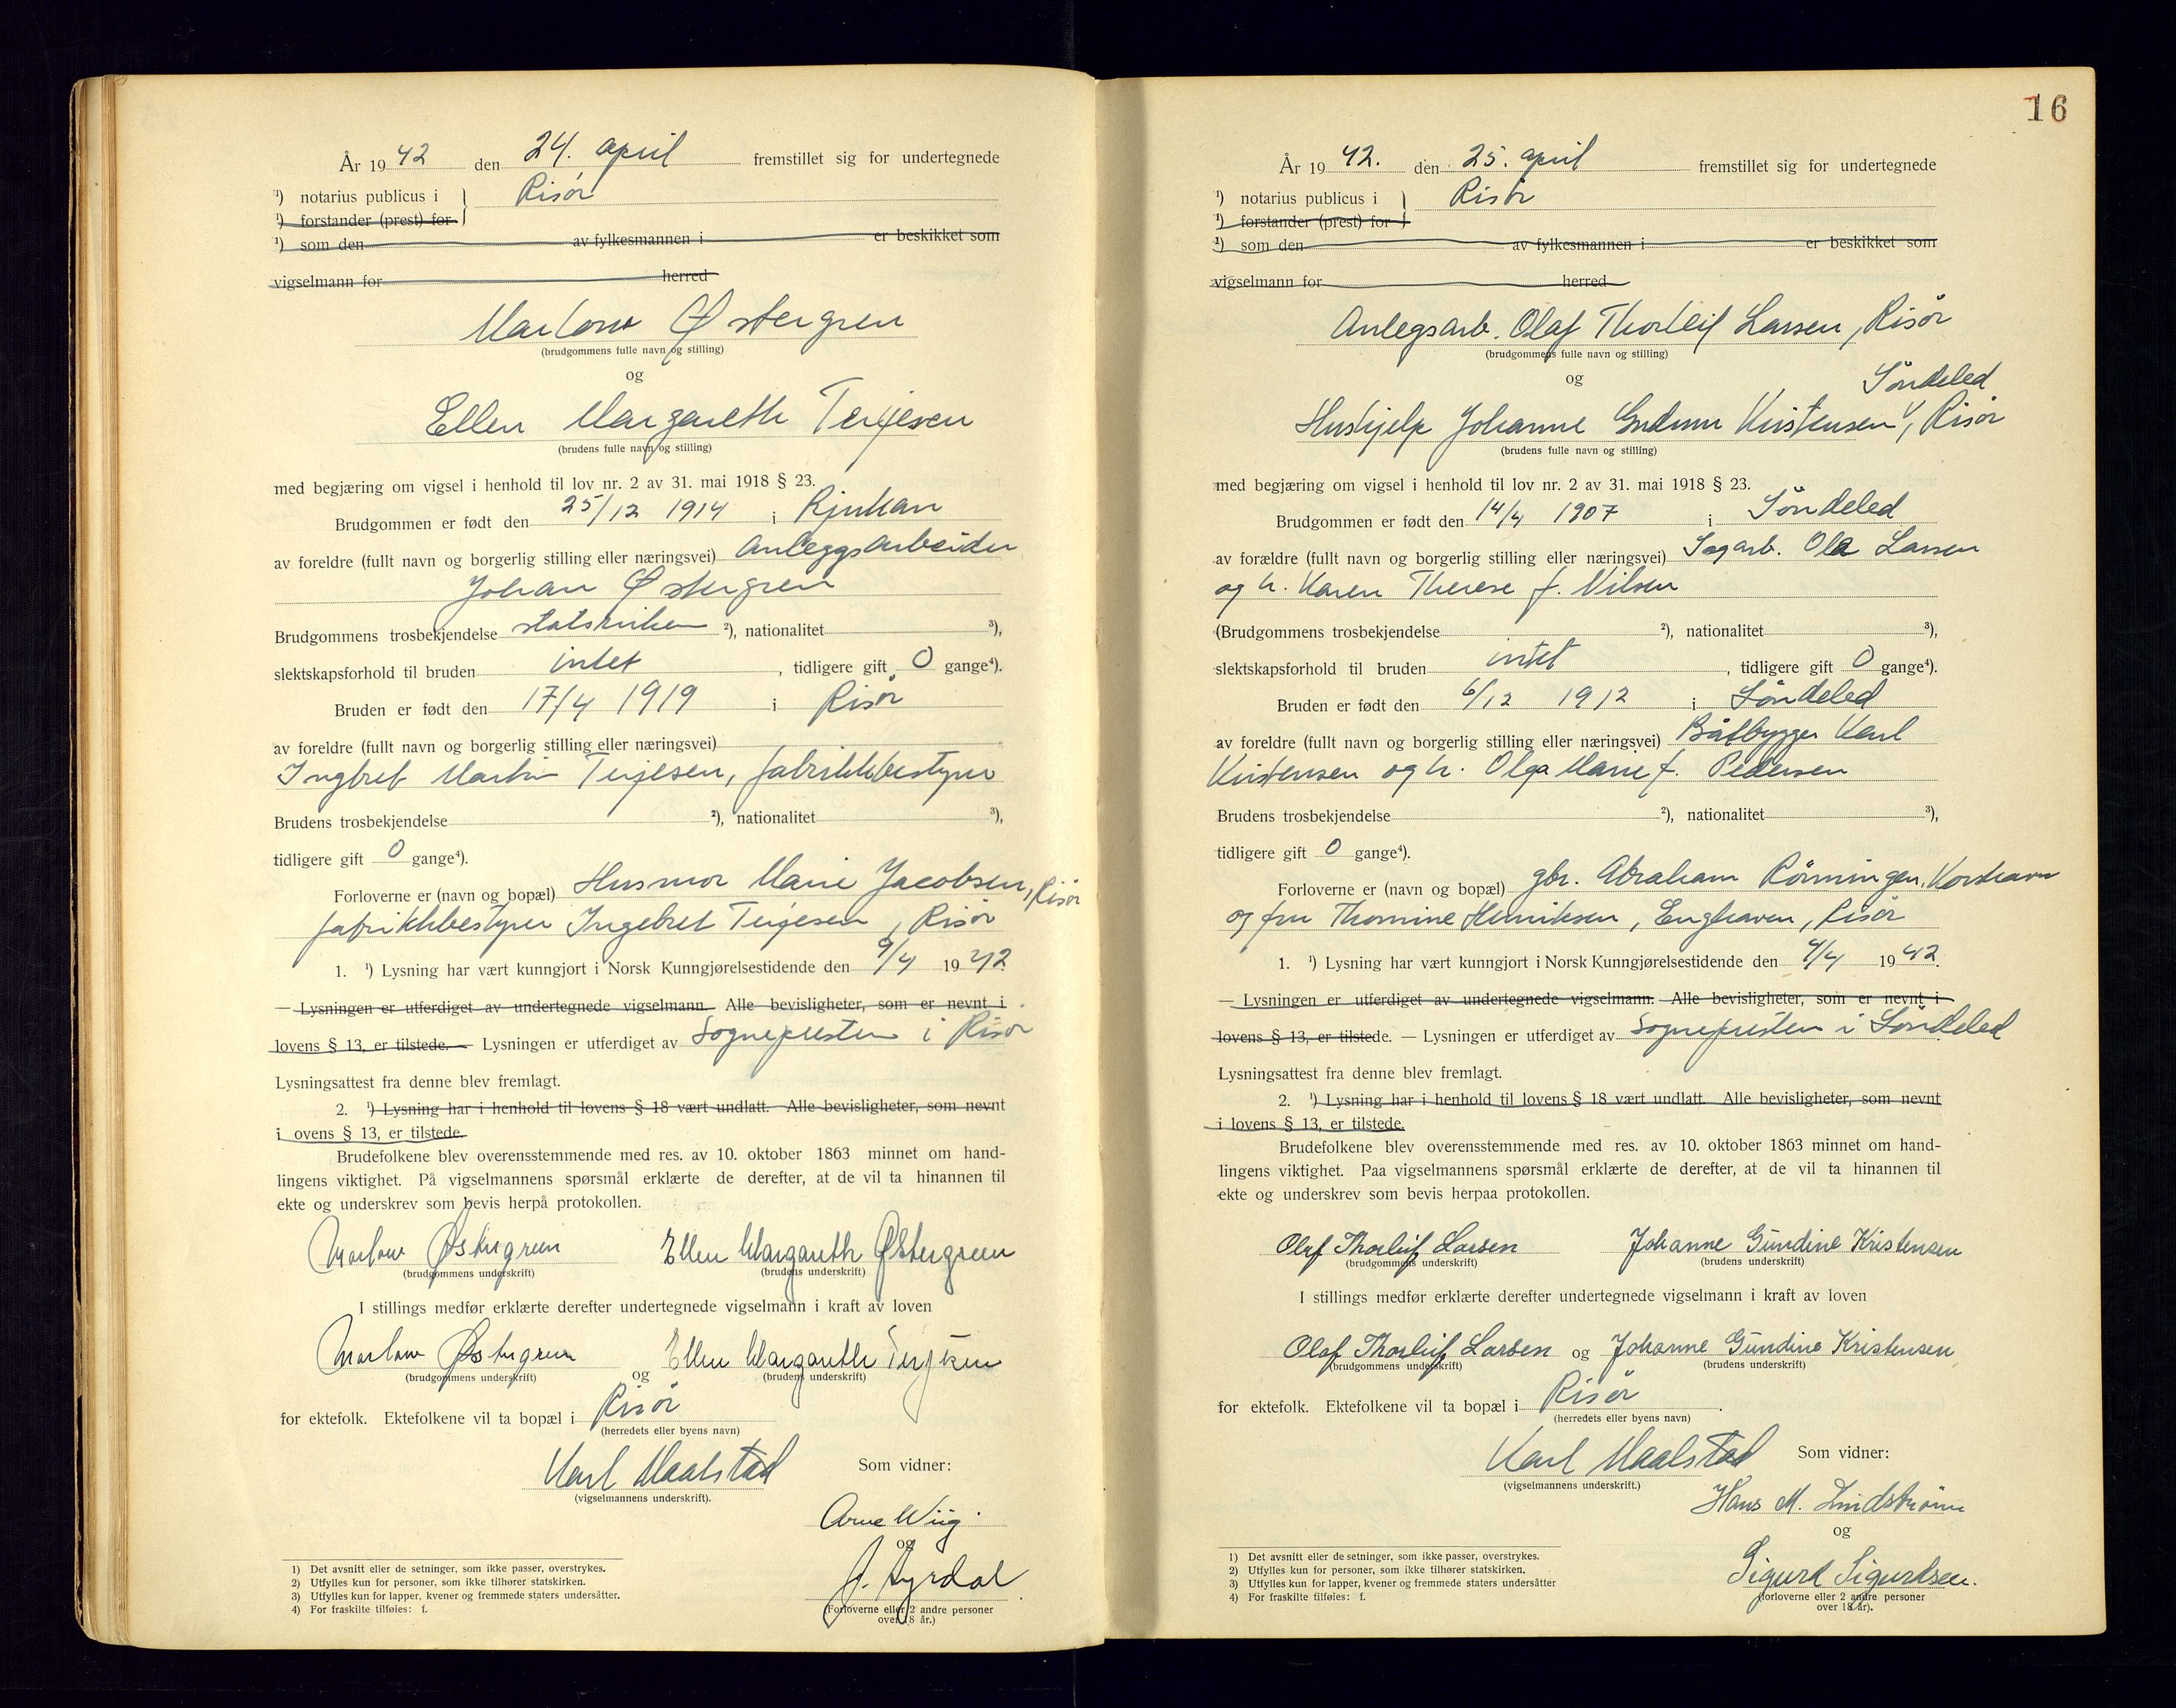 År 19 42 den 24. april fremstillet sig for undertegnede
¹) notarius publicus i } Risør
¹) forstander (prest) for
¹) som den av fylkesmannen i er beskikket som
vigselmann for herred
Marlow Østergren
(brudgommens fulle navn og stilling)
og
Ellen Margareth Terjesen
(brudens fulle navn og stilling)
med begjæring om vigsel i henhold til lov nr. 2 av 31. mai 1918 § 23.
Brudgommen er født den 25/12 1914 i Rjukan
av foreldre (fullt navn og borgerlig stilling eller næringsvei) Anleggsarbeider
Johan Østergren
Brudgommens trosbekjendelse statskirken ²), nationalitet ³),
slektskapsforhold til bruden intet, tidligere gift 0 gange⁴).
Bruden er født den 17/4 1919 i Risør
av foreldre (fullt navn og borgerlig stilling eller næringsvei)
Ingbret Martin Terjesen, fabrikkbestyrer
Brudens trosbekjendelse ²), nationalitet ³),
tidligere gift 0 gange⁴).
Forloverne er (navn og bopæl) Husmor Marie Jacobsen, Risør
fabrikkbestyrer Ingebret Terjesen, Risør
1. ¹) Lysning har vært kunngjort i Norsk Kunngjørelsestidende den 9/4 19 42
— Lysningen er utferdiget av undertegnede vigselmann. Alle bevisligheter, som er nevnt i
lovens § 13, er tilstede. — Lysningen er utferdiget av Sognepresten i Risør
Lysningsattest fra denne blev fremlagt.
2. ¹) Lysning har i henhold til lovens § 18 vært undlatt. Alle bevisligheter, som nevnt
i ovens § 13, er tilstede.
Brudefolkene blev overensstemmende med res. av 10. oktober 1863 minnet om hand-
lingens viktighet. På vigselmannens spørsmål erklærte de derefter, at de vil ta hinannen til
ekte og underskrev som bevis herpå protokollen.
Marlow Østergreen Ellen Margareth Østergreen
(brudgommens underskrift) (brudens underskrift)
I stillings medfør erklærte derefter undertegnede vigselmann i kraft av loven
Marlow Østergreen og Ellen Margareth Terjesen
(brudgommens underskrift) (brudens underskrift)
for ektefolk. Ektefolkene vil ta bopæl i Risør
(herredets eller byens navn)
Karl Maalstad Som vidner:
(vigselmannens underskrift).
Arne Wiig
og
J. Hyrdal
(Forloverne eller 2 andre personer
over 18 år.)
1) Det avsnitt eller de setninger, som ikke passer, overstrykes.
2) Utfylles kun for personer, som ikke tilhører statskirken.
3) Utfylles kun for lapper, kvener og fremmede staters undersåtter.
4) For fraskilte tilføies: f.
16
År 19 42. den 25. april fremstillet sig for undertegnede
¹) notarius publicus i } Risör
¹) forstander (prest) for
¹) som den av fylkesmannen i er beskikket som
vigselmann for herred
Anlegsarb. Olaf Thorleif Larsen, Risör
(brudgommens fulle navn og stilling)
og
Söndeled
Hushjelp Johanne Gudrun Kristensen, Risör
(brudens fulle navn og stilling)
med begjæring om vigsel i henhold til lov nr. 2 av 31. mai 1918 § 23.
Brudgommen er født den 14/4 1907 i Söndeled
av forældre (fullt navn og borgerlig stilling eller næringsvei) Sagarb. Ola Larsen
og h. Karen Therese f. Nilsen
(Brudgommens trosbekjendelse ²), nationalitet ³),
slektskapsforhold til bruden intet, tidligere gift 0 gange⁴).
Bruden er født den 6/12 1912 i Söndeled
av foreldre (fullt navn og borgerlig stilling eller næringsvei) Båtbygger Karl
Kristensen og h. Olga Marie f. Pedersen
Brudens trosbekjendelse ²), nationalitet ³),
tidligere gift 0 gange⁴).
Forloverne er (navn og bopæl) gbr. Abraham Rönningen, Korshavn
og fru Thomine Henriksen, Enghaven, Risör
1. ¹) Lysning har vært kunngjort i Norsk Kunngjørelsestidende den 4/4 19 42.
— Lysningen er utferdiget av undertegnede vigselmann. Alle bevisligheter, som er nevnt i
lovens § 13, er tilstede. — Lysningen er utferdiget av Sognepresten i Söndeled
Lysningsattest fra denne blev fremlagt.
2. ¹) Lysning har i henhold til lovens § 18 vært undlatt. Alle bevisligheter, som nevnt
i lovens § 13, er tilstede.
Brudefolkene blev overensstemmende med res. av 10. oktober 1863 minnet om hand-
lingens viktighet. Paa vigselmannens spørsmål erklærte de derefter, at de vil ta hinannen til
ekte og underskrev som bevis herpaa protokollen.
Olaf Thorleif Larsen Johanne Gundine Kristensen
(brudgommens underskrift) (brudens underskrift)
I stillings medfør erklærte derefter undertegnede vigselmann i kraft av loven
Olaf Thorleif Larsen og Johanne Gundine Kristensen
(brudgommens underskrift) (brudens underskrift)
for ektefolk. Ektefolkene vil ta bopæl i Risör.
(herredets eller byens navn)
Karl Maalstad Som vidner:
(vigselmannens underskrift.)
Hans M. Lindstrøm
og
Sigurd Sigurdsen.
(forloverne eller 2 andre personer
over 18 år).
1) Det avsnitt eller de setninger, som ikke passer, overstrykes.
2) Utfylles kun for personer, som ikke tilhører statskirken.
3) Utfylles kun for lapper, kvener og fremmede staters undersåtter
4) For fraskilte tilføies: f.